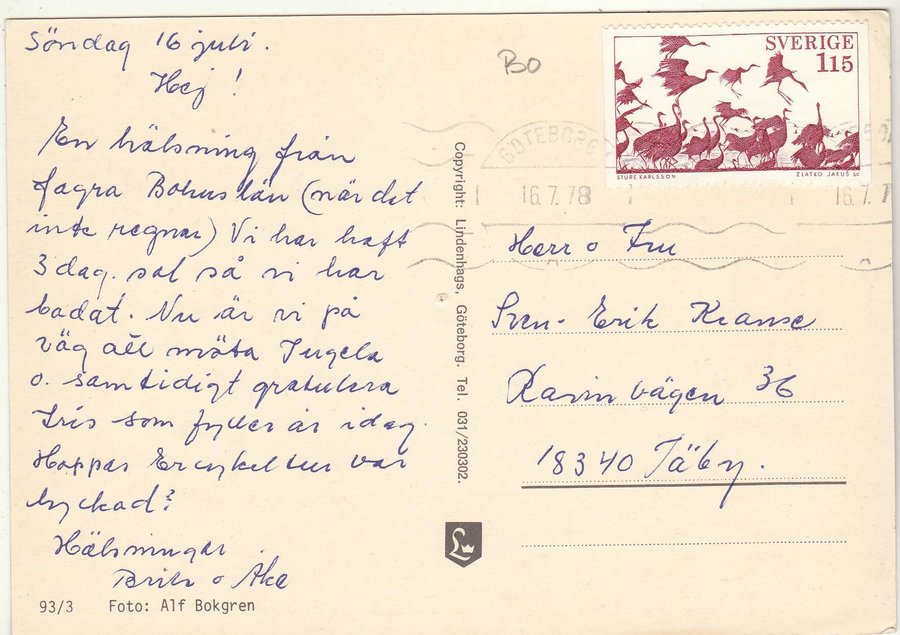 Söndag 16 juli.
Hej!
En hälsning från
fagra Bohuslän (när det
inte regnar) Vi har haft
3 dag. sol så vi har
badat. Nu är vi på
väg att möta
o. samtidigt gratulera
Iris som fyller år idag.
Hoppas Er cykeltur var
lyckad?
Hälsningar
o Åke
93/3 Foto: Alf Bokgren
Copyright: Lindenhags, Göteborg. Tel. 031/230302.
L
BO
SVERIGE
115
STURE KARLSSON ZLATKO JAKUS SC
GÖTEBORG
16.7.78
16.7.7
Herr o Fru
Sven-Erik Kranse
Karinvägen 36
18340 Täby.